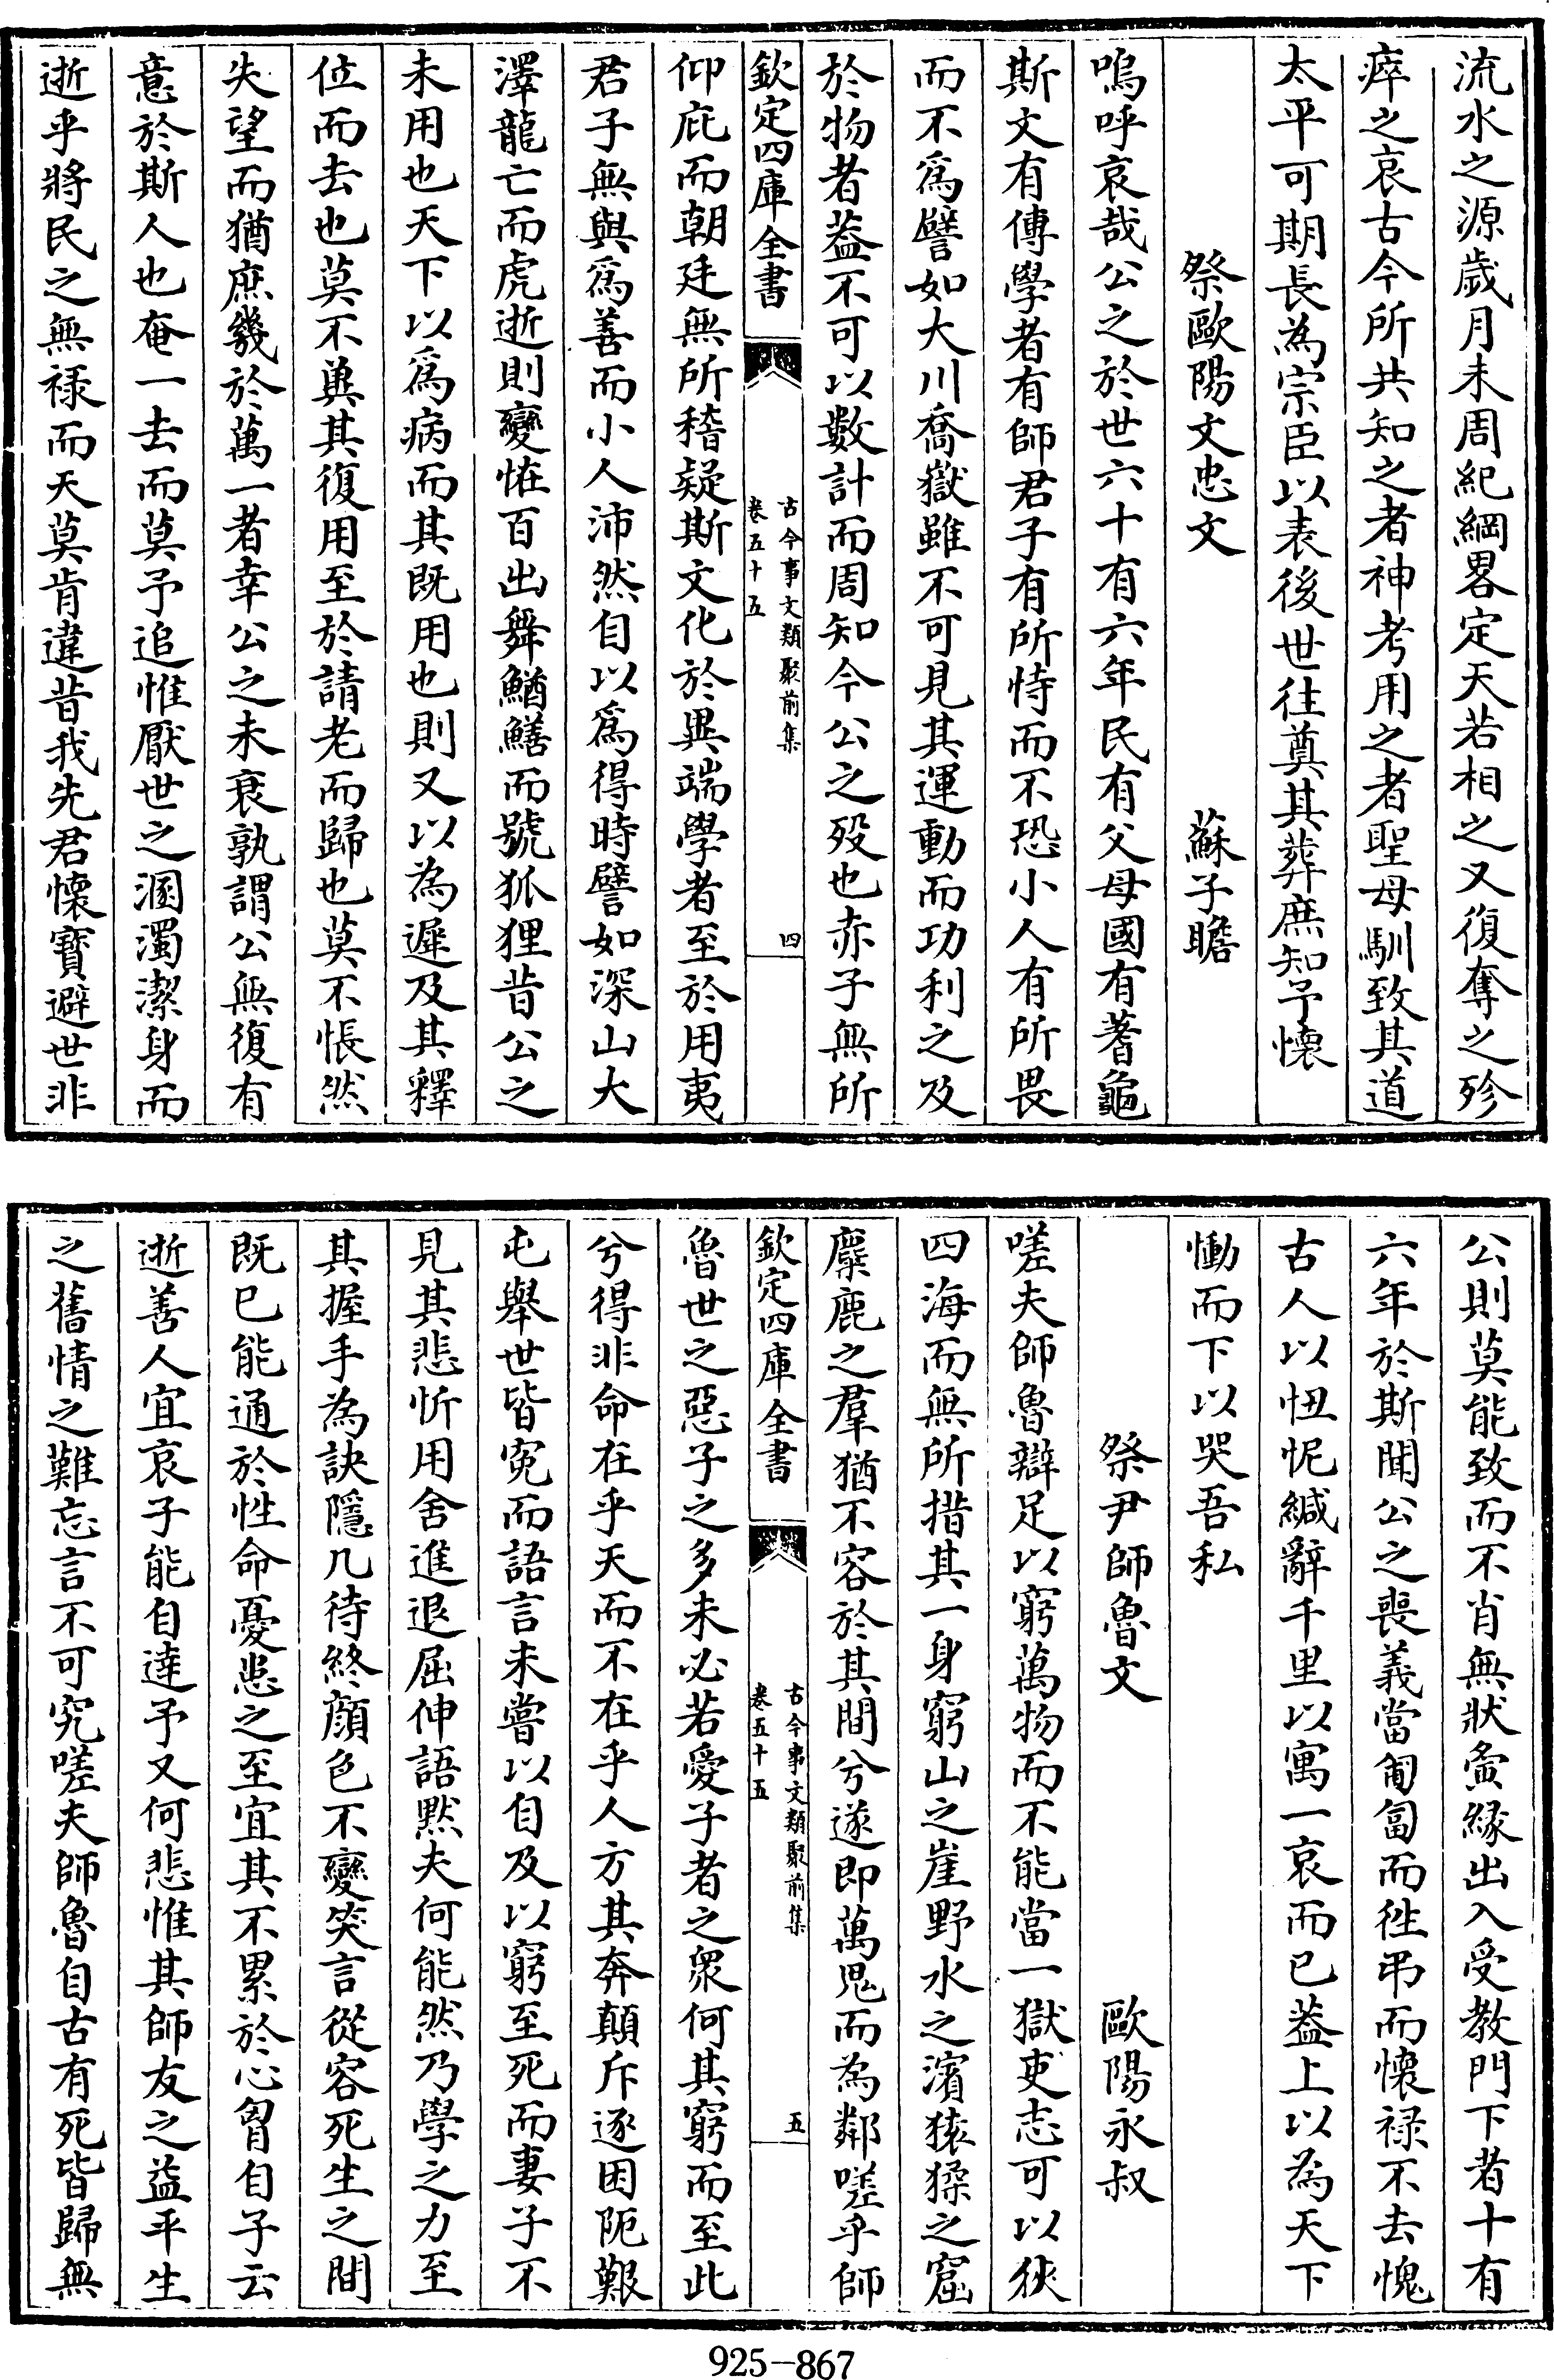 流水之源歲月未周紀綱畧定天若相之又復奪之殄
瘁之哀古今所共知之者神考用之者聖母馴致其道
太平可期長為宗臣以表後世往奠其葬庶知予懷
祭歐陽文忠文 蘇子瞻
嗚呼哀哉公之於世六十有六年民有父母國有蓍龜
斯文有傳學者有師君子有所恃而不恐小人有所畏
而不爲譬如大川喬嶽雖不可見其運動而功利之及
於物者葢不可以數計而周知今公之殁也赤子無所
欽定四庫全書 古今事文類聚前集 卷五十五 四
仰庇而朝廷無所稽疑斯文化於異端學者至於用夷
君子無與爲善而小人沛然自以爲得時譬如深山大
澤龍亡而虎逝則變怪百出舞鰌鱔而號狐狸昔公之
未用也天下以爲病而其既用也則又以為遲及其釋
位而去也莫不兾其復用至於請老而歸也莫不悵然
失望而猶庶幾於萬一者幸公之未衰孰謂公無復有
意於斯人也奄一去而莫予追惟厭世之溷濁潔身而
逝乎將民之無禄而天莫肯違昔我先君懷寶避世非
公則莫能致而不肖無狀夤緣出入受教門下者十有
六年於斯聞公之喪義當匍匐而徃弔而懷禄不去愧
古人以忸怩緘辭千里以寓一哀而已葢上以為天下
慟而下以哭吾私
祭尹師魯文 歐陽永叔
嗟夫師魯辯足以窮萬物而不能當一獄吏志可以狹
四海而無所措其一身窮山之崖野水之濱猿猱之窟
麋鹿之羣猶不容於其間兮遂即萬鬼而為鄰嗟乎師
欽定四庫全書 古今事文類聚前集 卷五十五 五
魯世之惡子之多未必若愛子者之衆何其窮而至此
兮得非命在乎天而不在乎人方其奔顛斥逐困阨艱
屯舉世皆寃而語言未嘗以自及以窮至死而妻子不
見其悲忻用舍進退屈伸語黙夫何能然乃學之力至
其握手為訣隱几待終顔色不變笑言從容死生之間
既已能通於性命憂患之至宜其不累於心胷自子云
逝善人宜哀子能自達予又何悲惟其師友之益平生
之舊情之難忘言不可究嗟夫師魯自古有死皆歸無
925-867